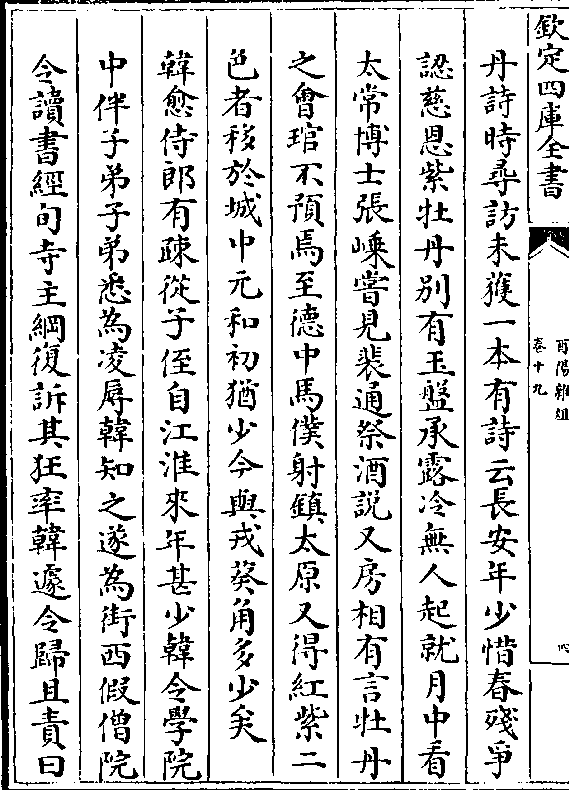 欽定四庫全書
酉陽雜俎
卷十九
四
丹詩時尋訪未獲一本有詩云長安年少惜春殘爭
認慈恩紫牡丹別有玉盤承露冷無人起就月中看
太常博士張嵊嘗見裴通祭酒說又房相有言牡丹
之會琯不預焉至德中馬僕射鎮太原又得紅紫二
色者移於城中元和初猶少今與戎葵角多少矣
韓愈侍郎有疎從子侄自江淮來年甚少韓令學院
中伴子弟子弟悉為凌辱韓知之遂為街西假僧院
令讀書經旬寺主綱復訴其狂率韓遽令歸且責曰